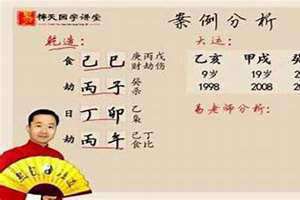 天国学讲堂
案例分析
乾造: 大运:
食 己巳 庚丙戊
财劫伤
劫 丙子 癸
杀
日 丁卯 乙
枭
劫 丙午 己丁
食比
乙亥 甲戌
9岁 19岁 2
1998 2008 20
易老师分析: